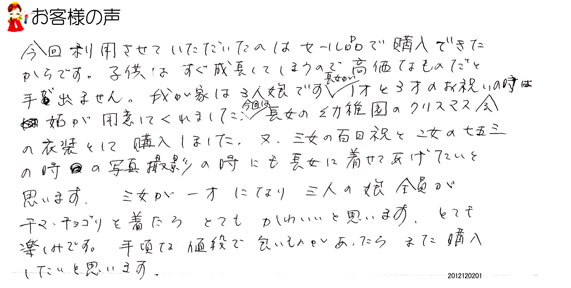 お客様の声
今回利用させていただいたのはセール品で購入できた
からです。子供はすぐ成長してしまうので高価なものだと
手が出ません。我が家は3人娘です。長女が1才と3才のお祝いの時は
姑が用意してくれました。今回は長女の幼稚園のクリスマス会
の衣装として購入しました。又、三女の百日祝と二女の七五三
の時の写真撮影の時にも長女に着せてあげたいと
思います。三女が一才になり三人の娘全員が
チマ・チョゴリを着たらとてもかわいいと思います。とても
楽しみです。手頃な値段で良いものがあったらまた購入
したいと思います。
2012120201